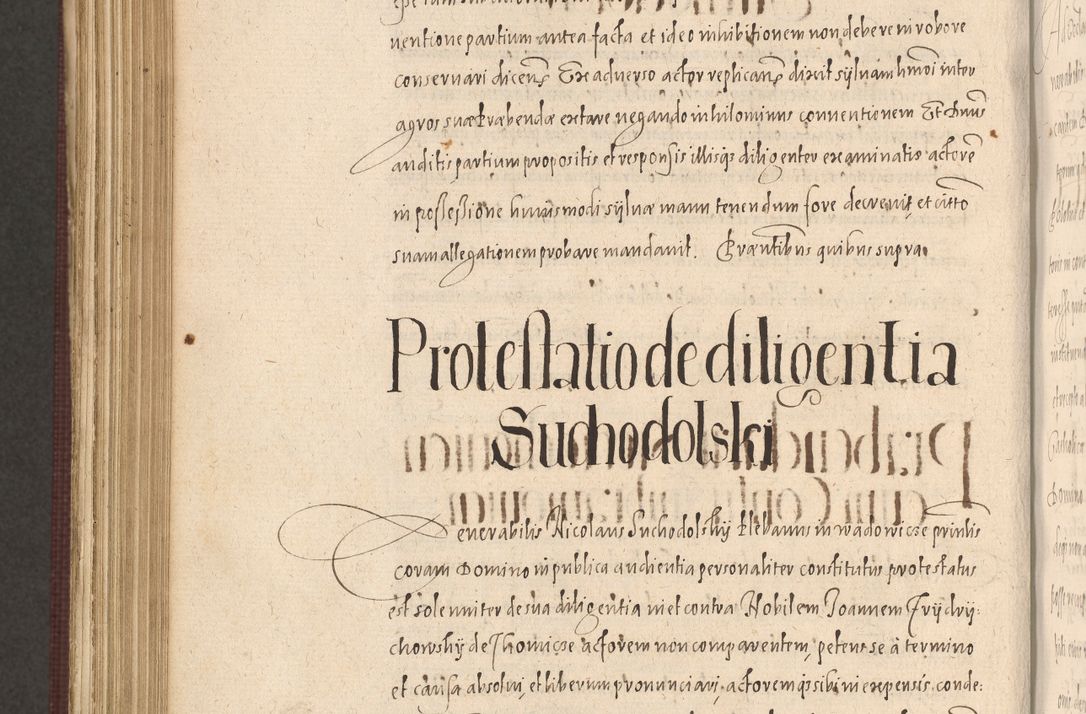 ventione partium antea facta et ideo inhibitionem non debere in robore
conservari dicens Ex adverso actor replicans dixit sylvam hmoi inter
agros suæ Krabendæ extare negando inhilominus conventionem Et Dnus
auditis partium propositis et responsis illisqs diligenter examinatis actore
in possessione huiusmodi sylvæ manutenendum fore decrevit et citto
suam allegationem probare mandavit. Præntibus quibus supra
Protestatio de diligentia
Suchodolski
Venerabilis Nicolaus Suchodolskij Plebanus in wadowicze prinlis
coram Domino in publica audientia personaliter constitutus protestatus
est solenniter de sua diligentia met contra Nobilem Joannem Frijdrij:
chowskij de Thomicze actorem non comparentem, petens se à termino
et causa absolvi, et liberum pronunciari, actoremqs sibi in expensis conde: